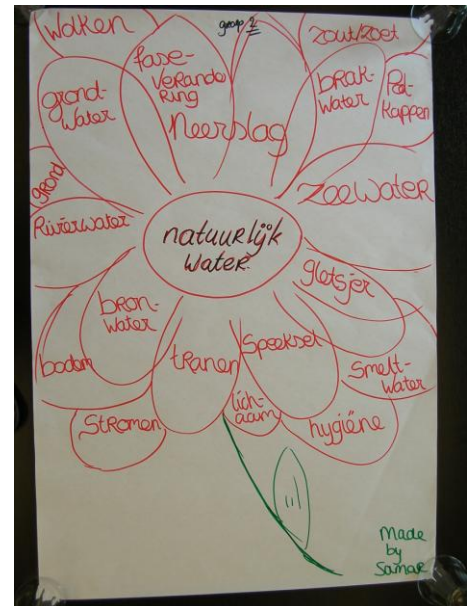 groep 2
Wolken
fase-
verande
Ring
zout/zoet
grond-
water
Neerslag
brak-
water
Pol-
kappen
grond
zeewater
Rivierwater
natuurlijk
water.
gletsjer
bron-
water
bodem
tranen
Speeksel
Smelt-
water
Stromen
lich-
aam
hygiëne
Made
by
Samar